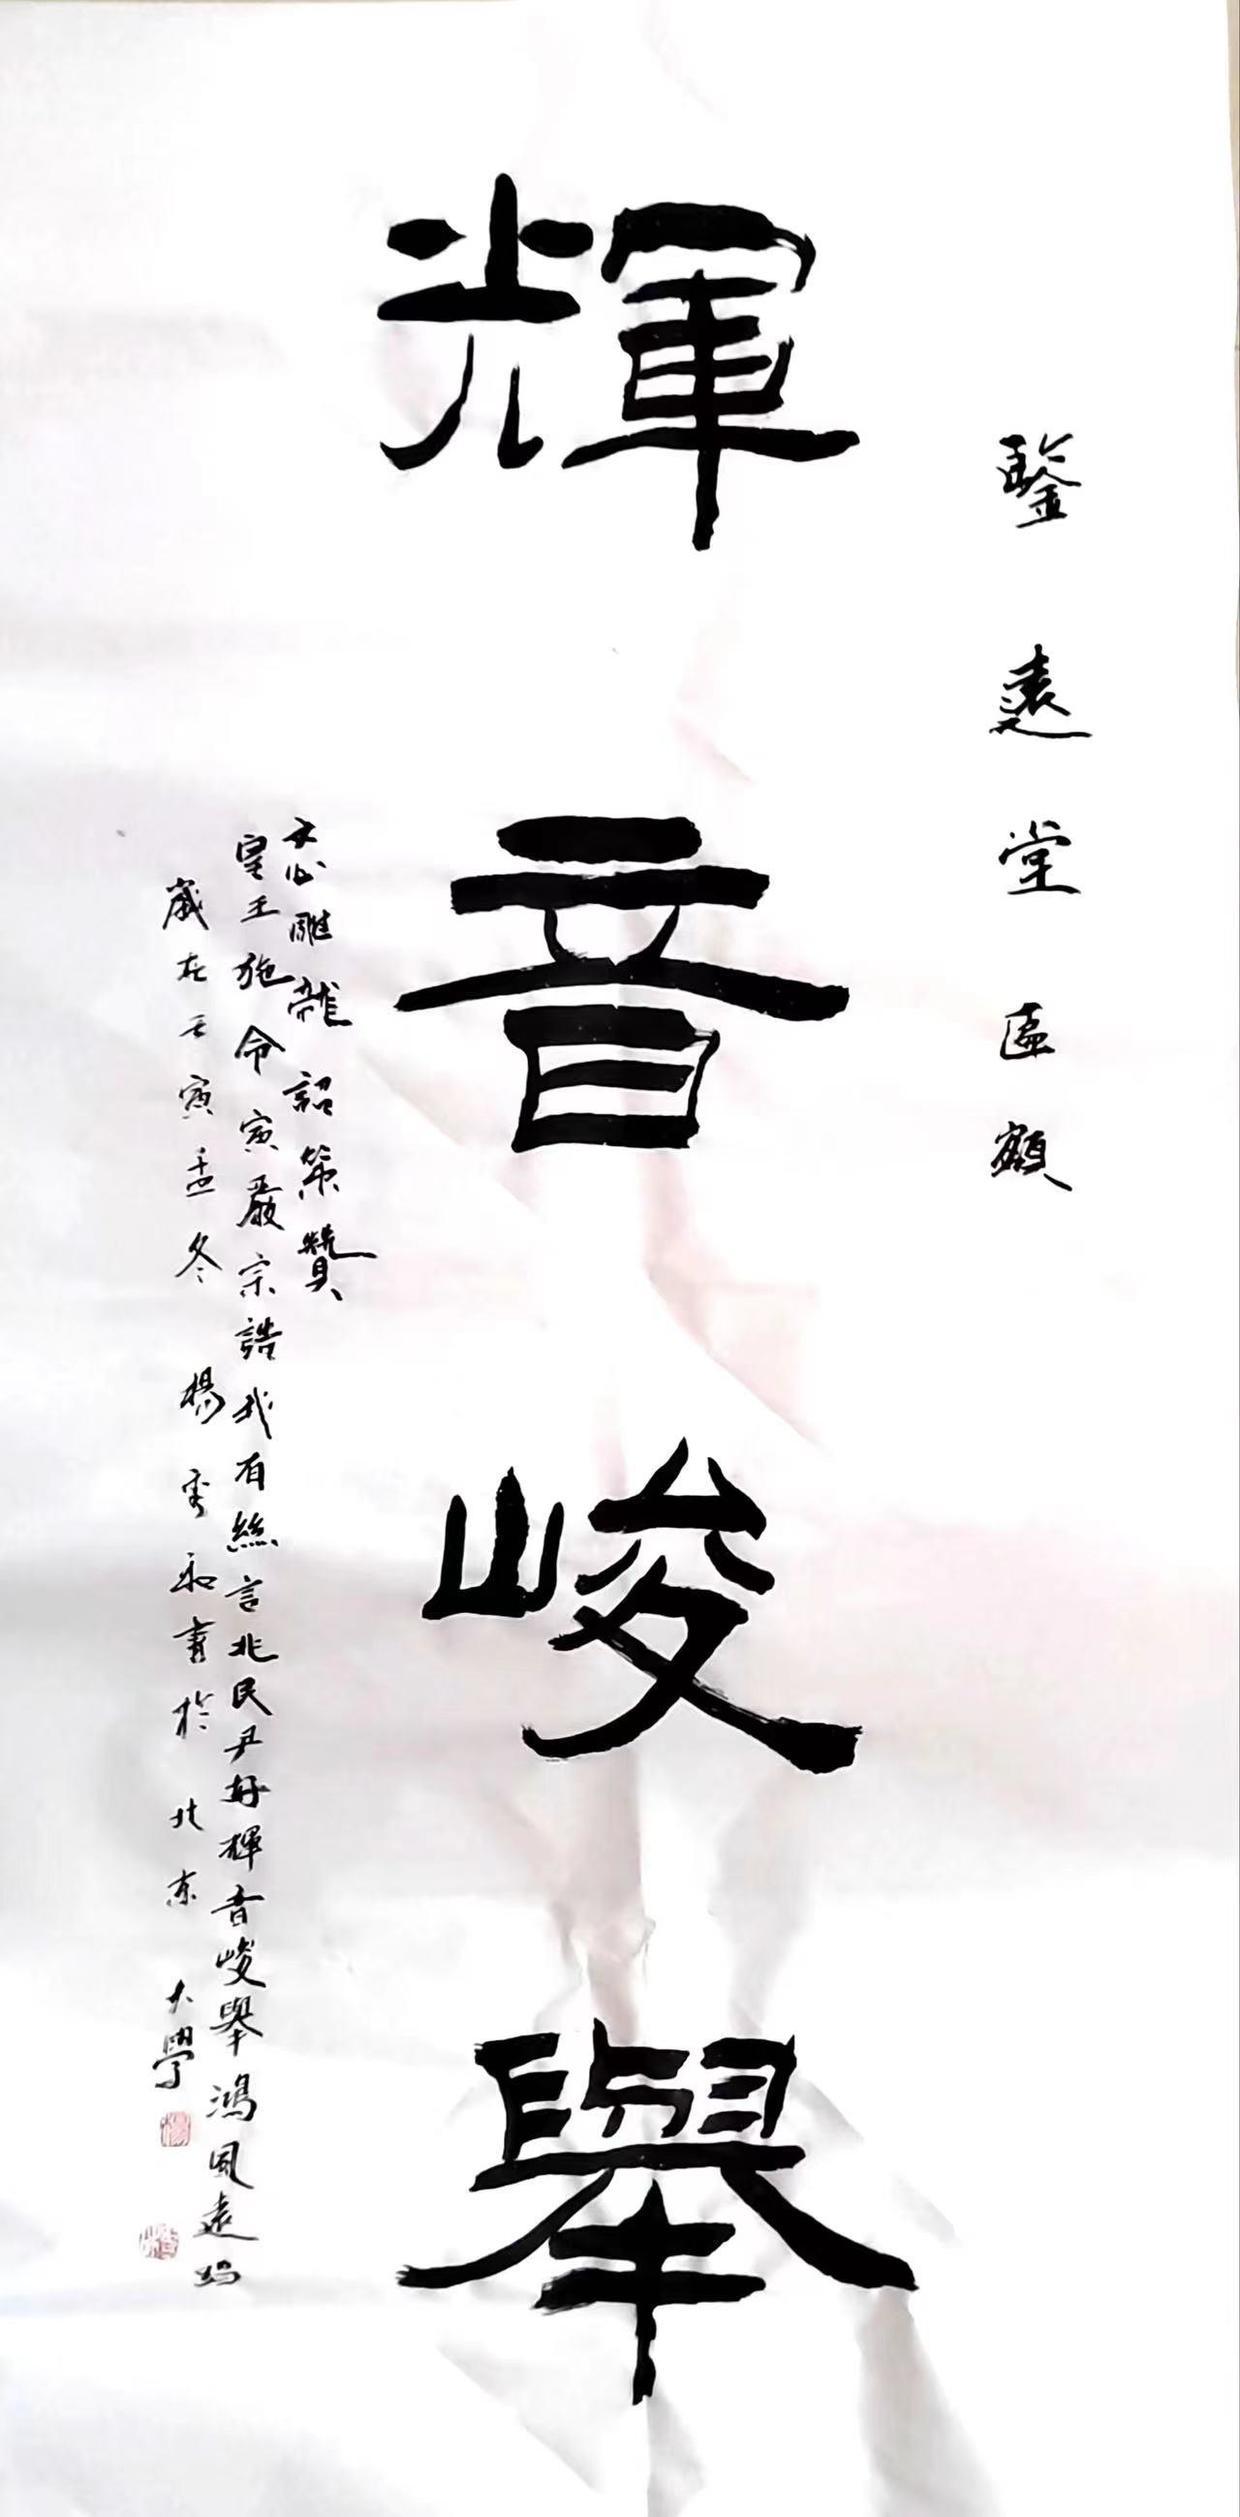 鑒遠堂匾額
輝音峻舉
文心雕龍詔策贊
皇王施令寅嚴宗誥我有絲言兆民尹好輝音峻舉鴻風遠蹈
歲在壬寅孟冬楊和書於北京大學